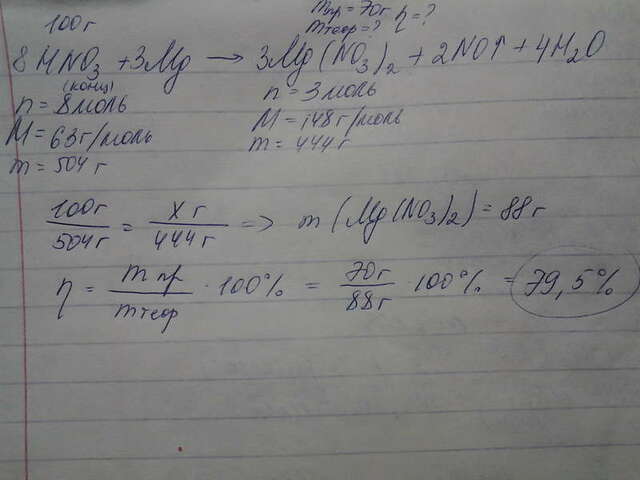 100г mпр=70г η=?
mтеор=?
8HNO₃ + 3Mg → 3Mg(NO₃)₂ + 2NO↑ + 4H₂O
(конц)
n = 8моль n = 3моль
M = 63г/моль M = 148г/моль
m = 504г m = 444г
100г/504г = Xг/444г => m(Mg(NO₃)₂) = 88г
η = mпр/mтеор · 100% = 70г/88г · 100% = 79,5%